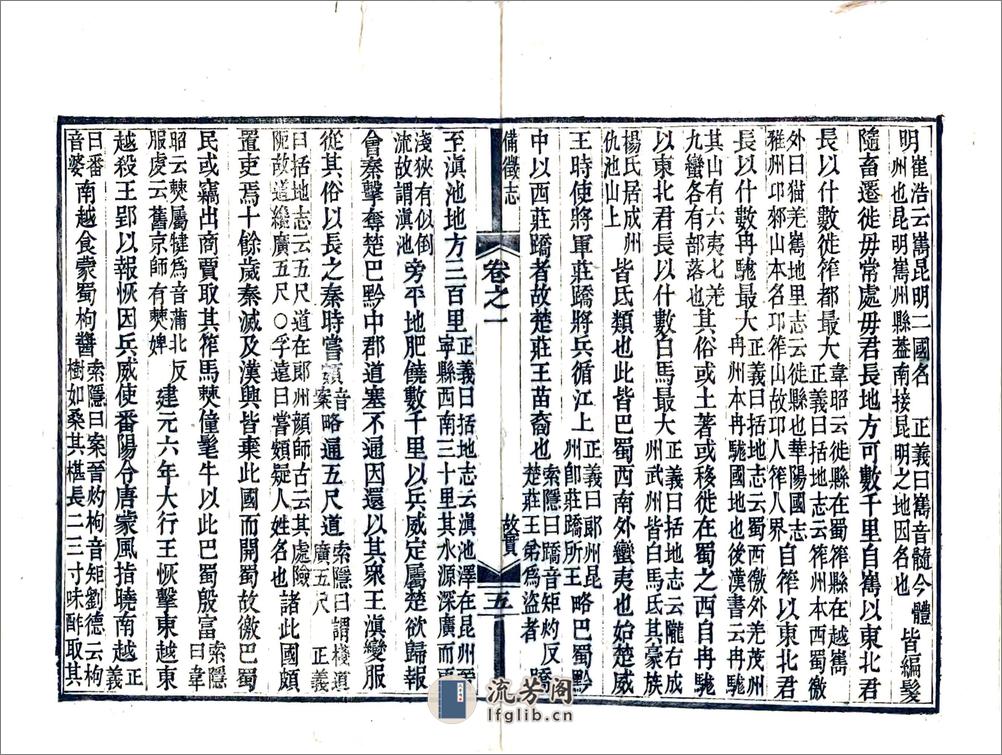 明崔浩云嶲昆明二國名　正義曰嶲音髓今體州也昆明嶲州縣葢南接昆明之地因名也皆編髮
隨畜遷徙毋常處毋君長地方可數千里自嶲以東北君
長以什數徙筰都最大韋昭云徙縣在蜀筰縣在越嶲正義曰括地志云筰州本西蜀徼
外曰猫羌嶲地里志云徙縣也華陽國志雅州邛郲山本名邛筰山故邛人筰人界自筰以東北君
長以什數冉駹最大正義曰括地志云蜀西徼外羌茂州冉州本冉駹國地也後漢書云冉駹
其山有六夷七羌九蠻各有部落也其俗或土著或移徙在蜀之西自冉駹
以東北君長以什數白馬最大正義曰括地志云隴右成州武州皆白馬氐其豪族
楊氏居成州仇池山上皆氐類也此皆巴蜀西南外蠻夷也始楚威
王時使將軍莊蹻將兵循江上正義曰郎州昆州卽莊蹻所王略巴蜀黔
中以西莊蹻者故楚莊王苗裔也索隱曰蹻音矩灼反楚莊王弟爲盜者蹻
備徵志　卷之一　故實　五
至滇池地方三百里正義曰括地志云滇池澤在昆州晋寧縣西南三十里其水源深廣而更
淺狹有似倒流故謂滇池旁平地肥饒數千里以兵威定屬楚欲歸報
會秦擊奪楚巴黔中郡道塞不通因還以其衆王滇變服
從其俗以長之秦時嘗頞音案略通五尺道索隱曰謂棧道廣五尺　正義
曰括地志云五尺道在郎州顏師古云其處險阨故道纔廣五尺〇孚遠曰嘗頞疑人姓名也諸此國頗
置吏焉十餘歲秦滅及漢興皆棄此國而開蜀故徼巴蜀
民或竊出商賈取其筰馬僰僮髦牛以此巴蜀殷富索隱曰韋
昭云僰屬犍爲音蒲北反服虔云舊京師有僰婢建元六年大行王恢擊東越東
越殺王郢以報恢因兵威使番陽令唐蒙風指曉南越正義
曰番音婆南越食蒙蜀枸醬索隱曰案晉灼枸音矩劉德云枸樹如桑其椹長二三寸味酢取其
流芳阁
lfglib.cn